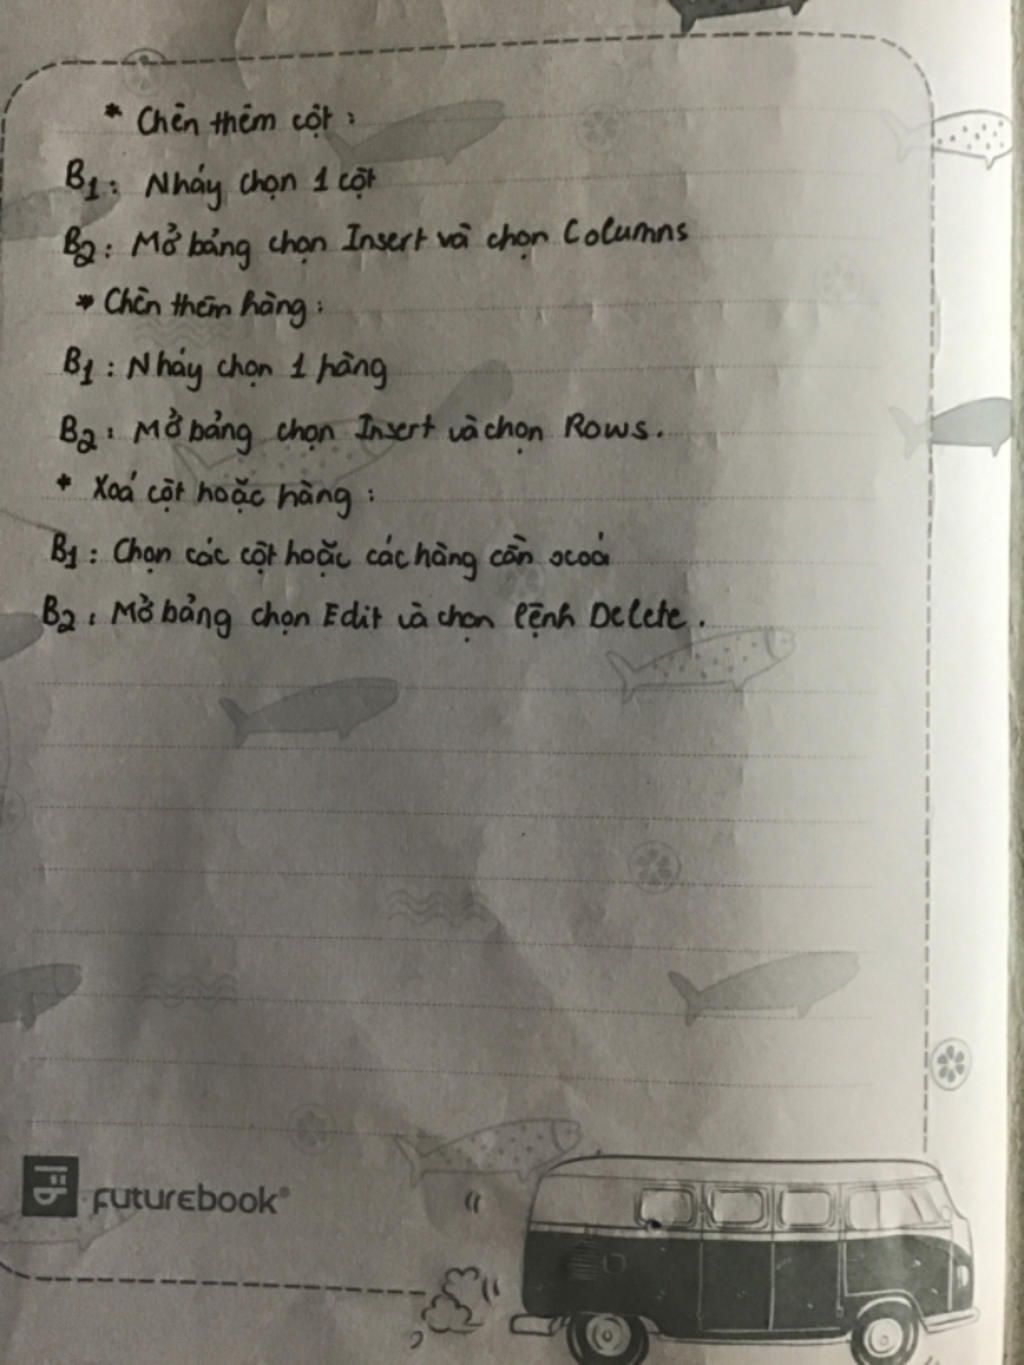 * Chèn thêm cột :
B1: Nháy chọn 1 cột
B2: Mở bảng chọn Insert và chọn Columns
* Chèn thêm hàng :
B1 : Nháy chọn 1 hàng
B2 : Mở bảng chọn Insert và chọn Rows.
* Xoá cột hoặc hàng :
B1 : Chọn các cột hoặc các hàng cần xoá
B2 : Mở bảng chọn Edit và chọn lệnh Delete.
FUTUREBOOK®